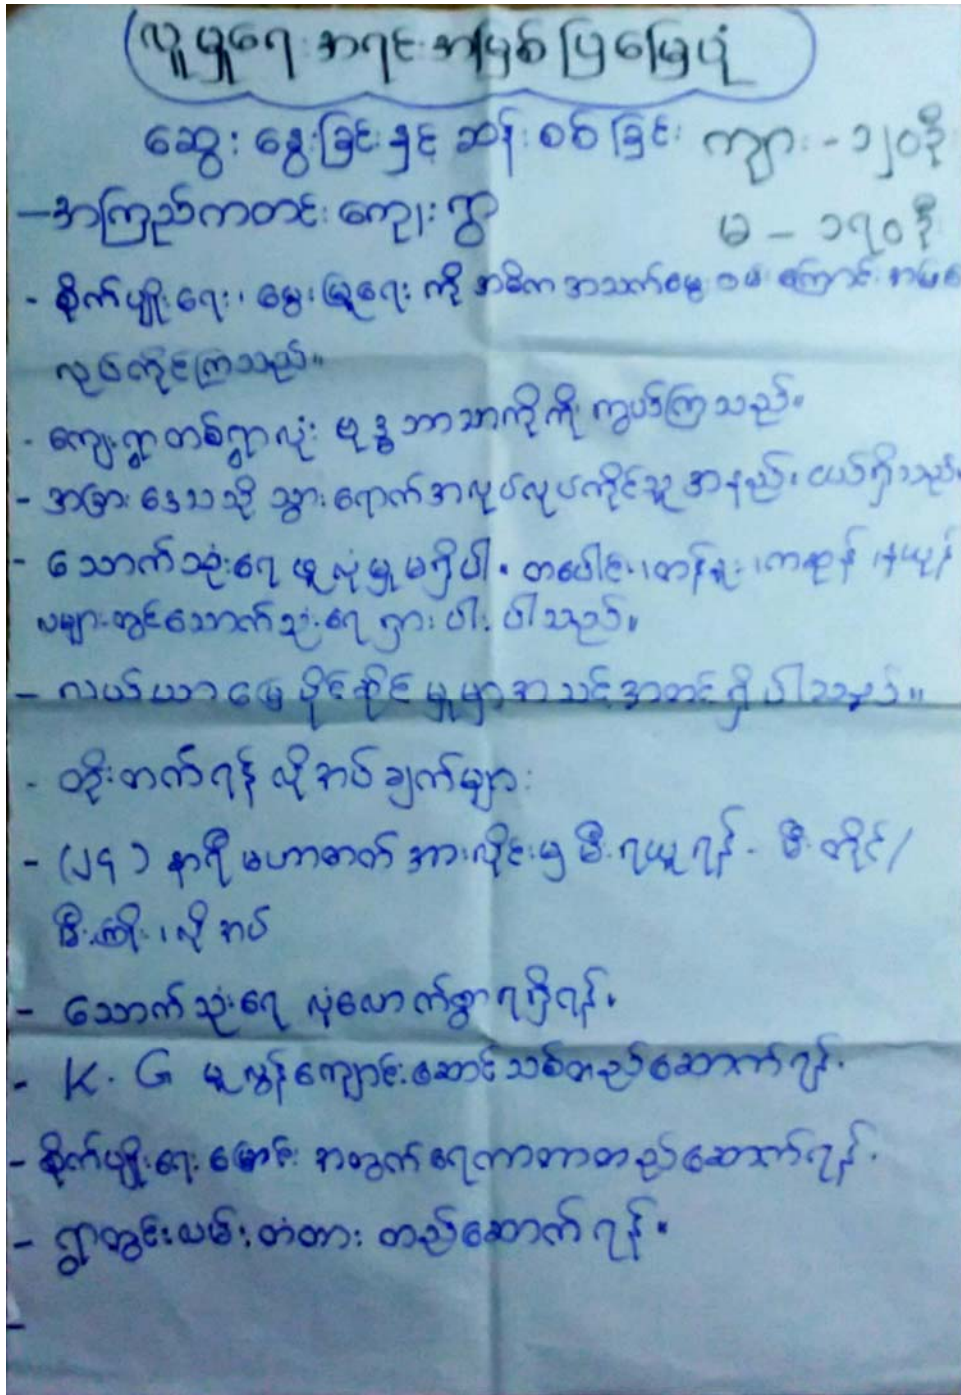 လူမှုရေး အရင်းအမြစ်ပြမြေပုံ
ဆွေးနွေးခြင်းနှင့် ဆန်းစစ်ခြင်း ကျား - ၁၂၀ဦး
- အကြည်ကတင်းကျေးရွာ မ - ၁၇၀ဦး
- စိုက်ပျိုးရေး၊ မွေးမြူရေး ကို အဓိက အသက်မွေးဝမ်းကြောင်း
လုပ်ကိုင်ကြသည်။
- ကျေးရွာတစ်ရွာလုံး ဗုဒ္ဓဘာသာကိုကိုးကွယ်ကြသည်။
- အခြားဒေသသို့ သွားရောက်အလုပ်လုပ်ကိုင်သူ အနည်းငယ်ရှိသည်
- သောက်သုံးရေ ဖူလုံမှုမရှိပါ။ တပေါင်း၊ တန်ခူး၊ ကဆုန်၊ နယုန်
လများတွင်သောက်သုံးရေ ရှားပါးပါသည်။
- လယ်ယာမြေပိုင်ဆိုင်မှုမှာအသင့်အတင့်ရှိပါသည်။
- တိုးတက်ရန် လိုအပ်ချက်များ
- (၂၄) နာရီ မဟာဓာတ်အားလိုင်းမှ မီးရယူရန်. မီးတိုင်/
မီးကြိုး၊ လိုအပ်
- သောက်သုံးရေ လုံလောက်စွာရရှိရန်.
- K. G မူလွန်ကျောင်းဆောင်သစ်တည်ဆောက်ရန်.
- စိုက်ပျိုးရေးမြောင်း အတွက်ရေကာတာတည်ဆောက်ရန်.
- ရွာတွင်းလမ်း၊ တံတား တည်ဆောက်ရန်။